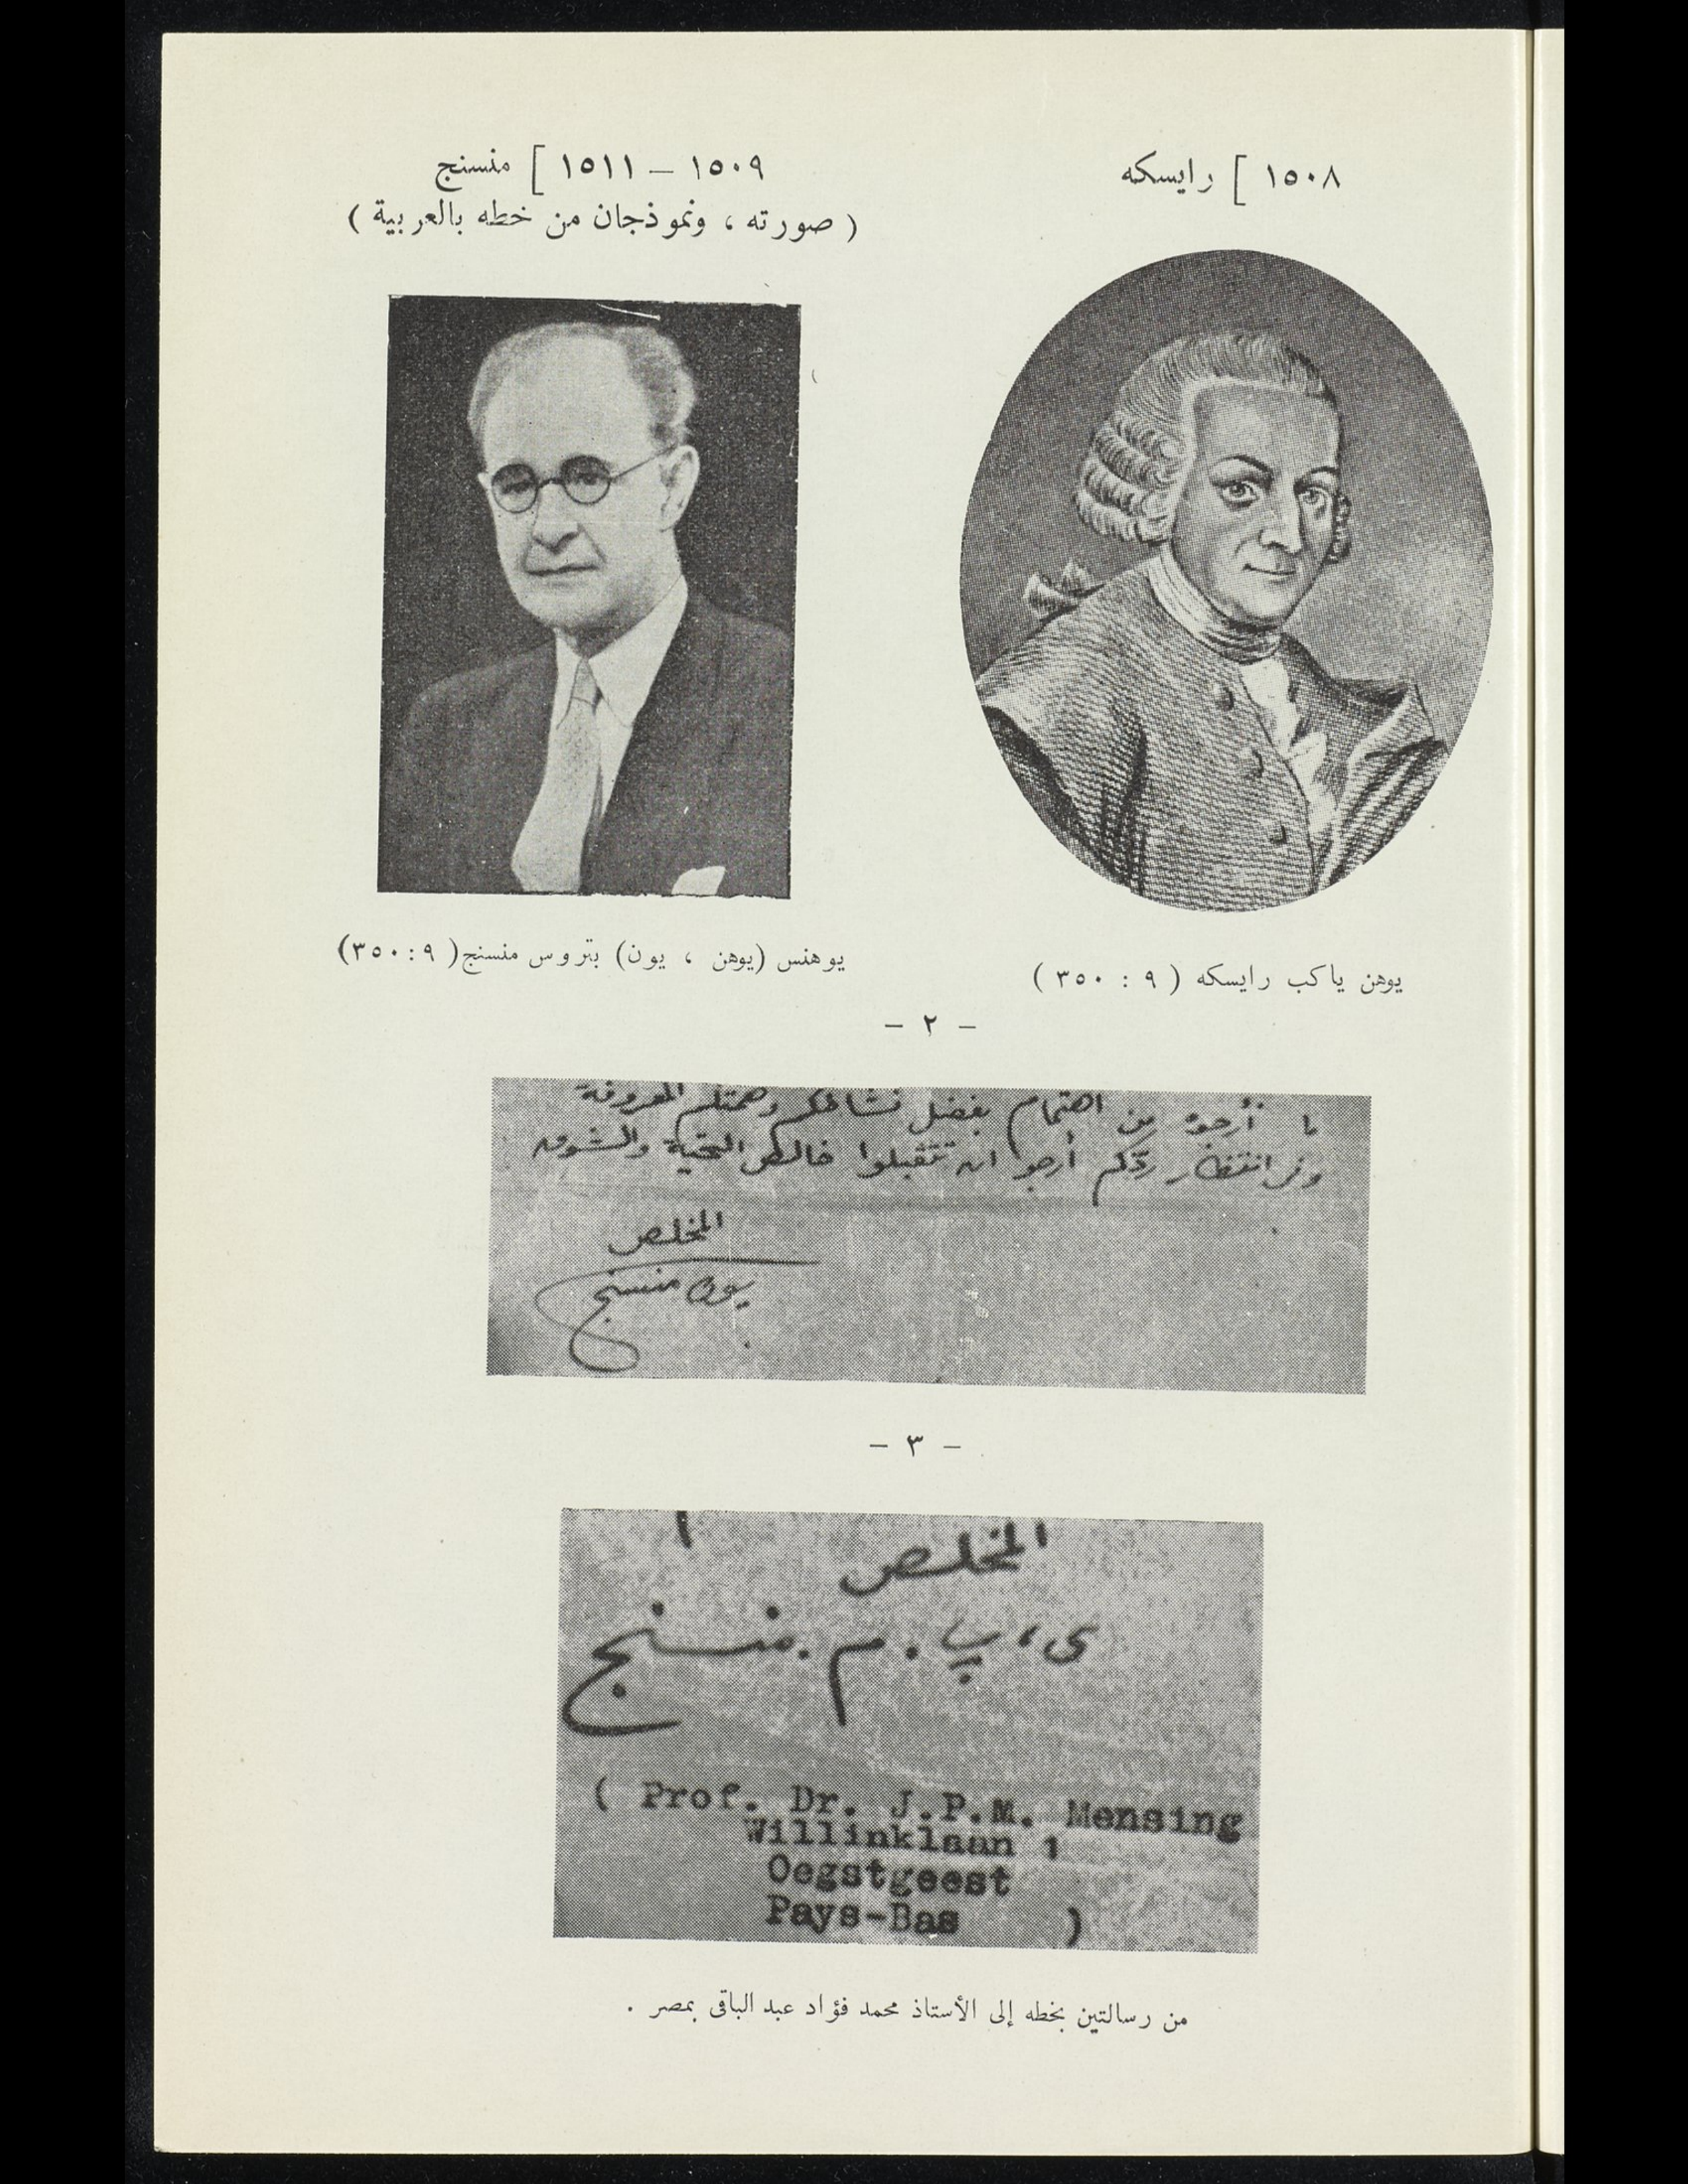 ١٥٠٨ ] رايسكه
١٥٠٩ – ١٥١١ ] منسنج
( صورته ، ونموذجان من خطه بالعربية )
يوهن ياكب رايسكه ( ٩ : ٣٥٠ )
يوهنس (يوهن ، يون) بتروس منسنج ( ٩ : ٣٥٠ )
– ٢ –
ما أرجوه من اهتمام بفضل نشاطكم وهمتكم المعروفة
وفى انتظار ردّكم أرجو ان تتقبلوا خالص التحيّة والشوق
المخلص
يون منسنج
– ٣ –
المخلص
ى، پ. م. منسنج
( Prof. Dr. J.P.M. Mensing
Willinklaan 1
Oegstgeest
Pays-Bas )
من رسالتين بخطه إلى الأستاذ محمد فؤاد عبد الباقى بمصر .